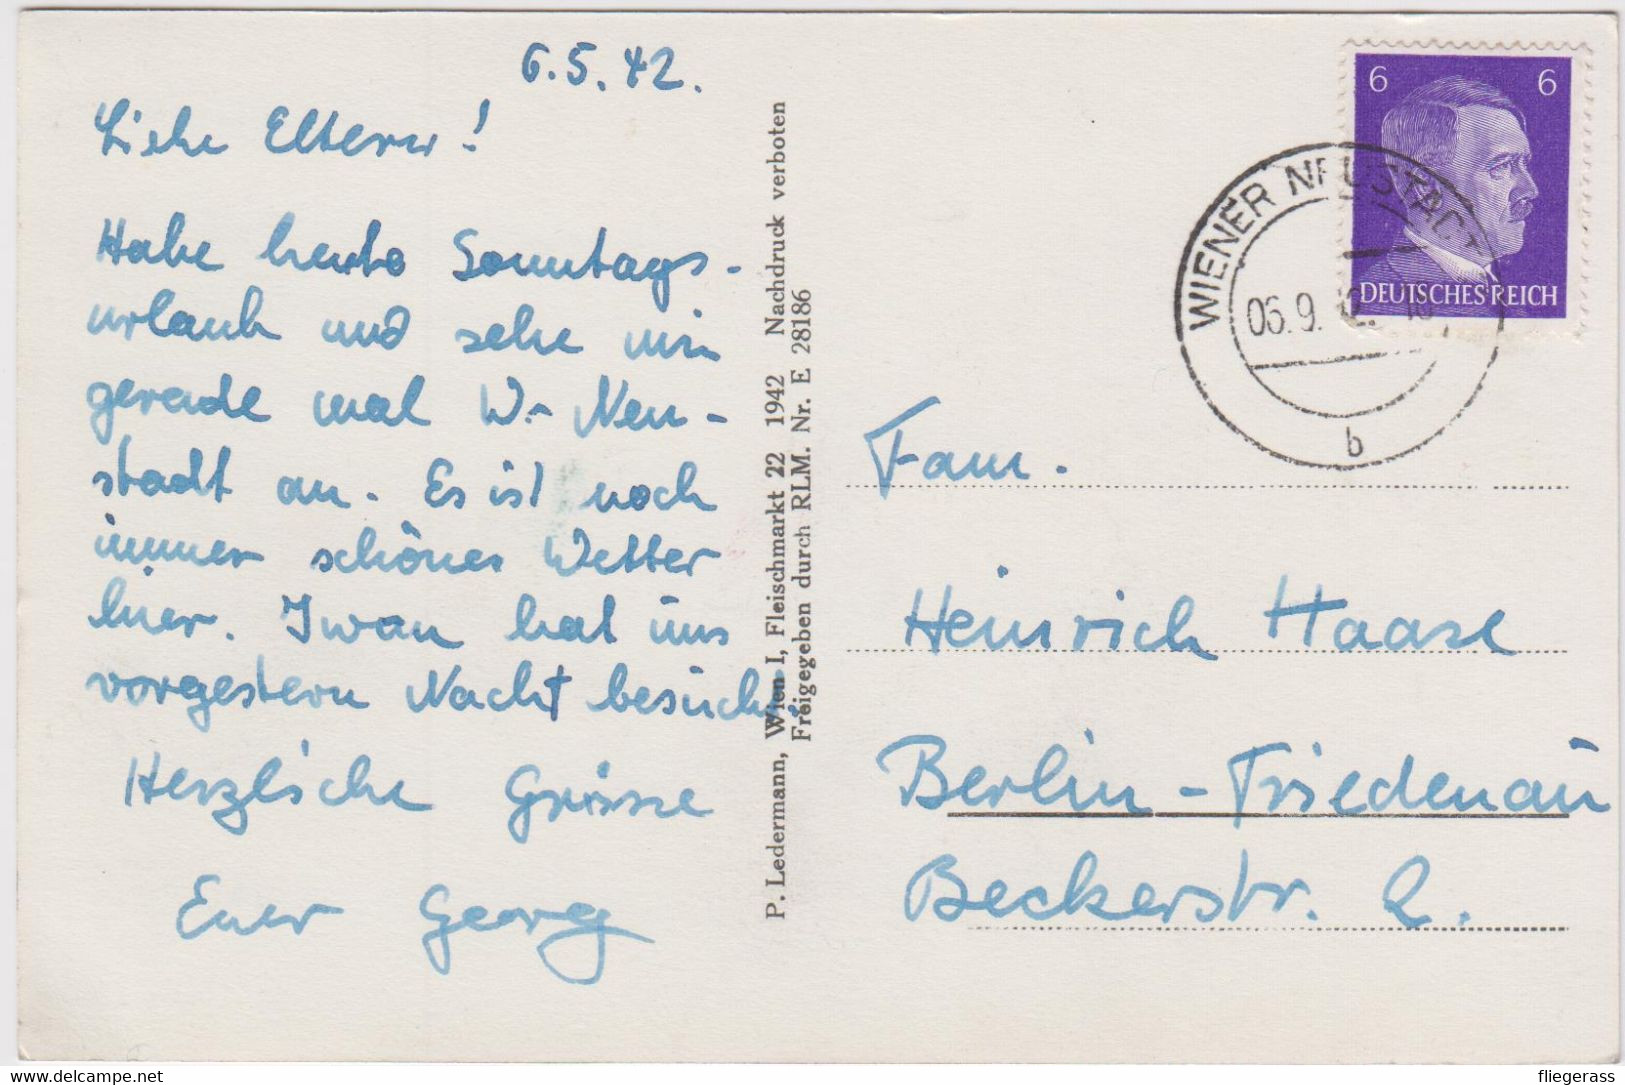 6.5.42.
Liebe Eltern!
Habe heute Sonntags-
urlaub und sehe mir
gerade mal W.-Neu-
stadt an. Es ist noch
immer schönes Wetter
hier. Iwan hat uns
vorgestern Nacht besucht.
Herzliche Grüsse
Euer Georg
P. Ledermann, Wien I, Fleischmarkt 22 1942 Nachdruck verboten
Freigegeben durch RLM. Nr. E 28186
6 6
DEUTSCHES REICH
WIENER NEUSTADT
06.9.
b
Fam.
Heinrich Haase
Berlin-Friedenau
Beckerstr. 2.
www.delcampe.net
fliegerass